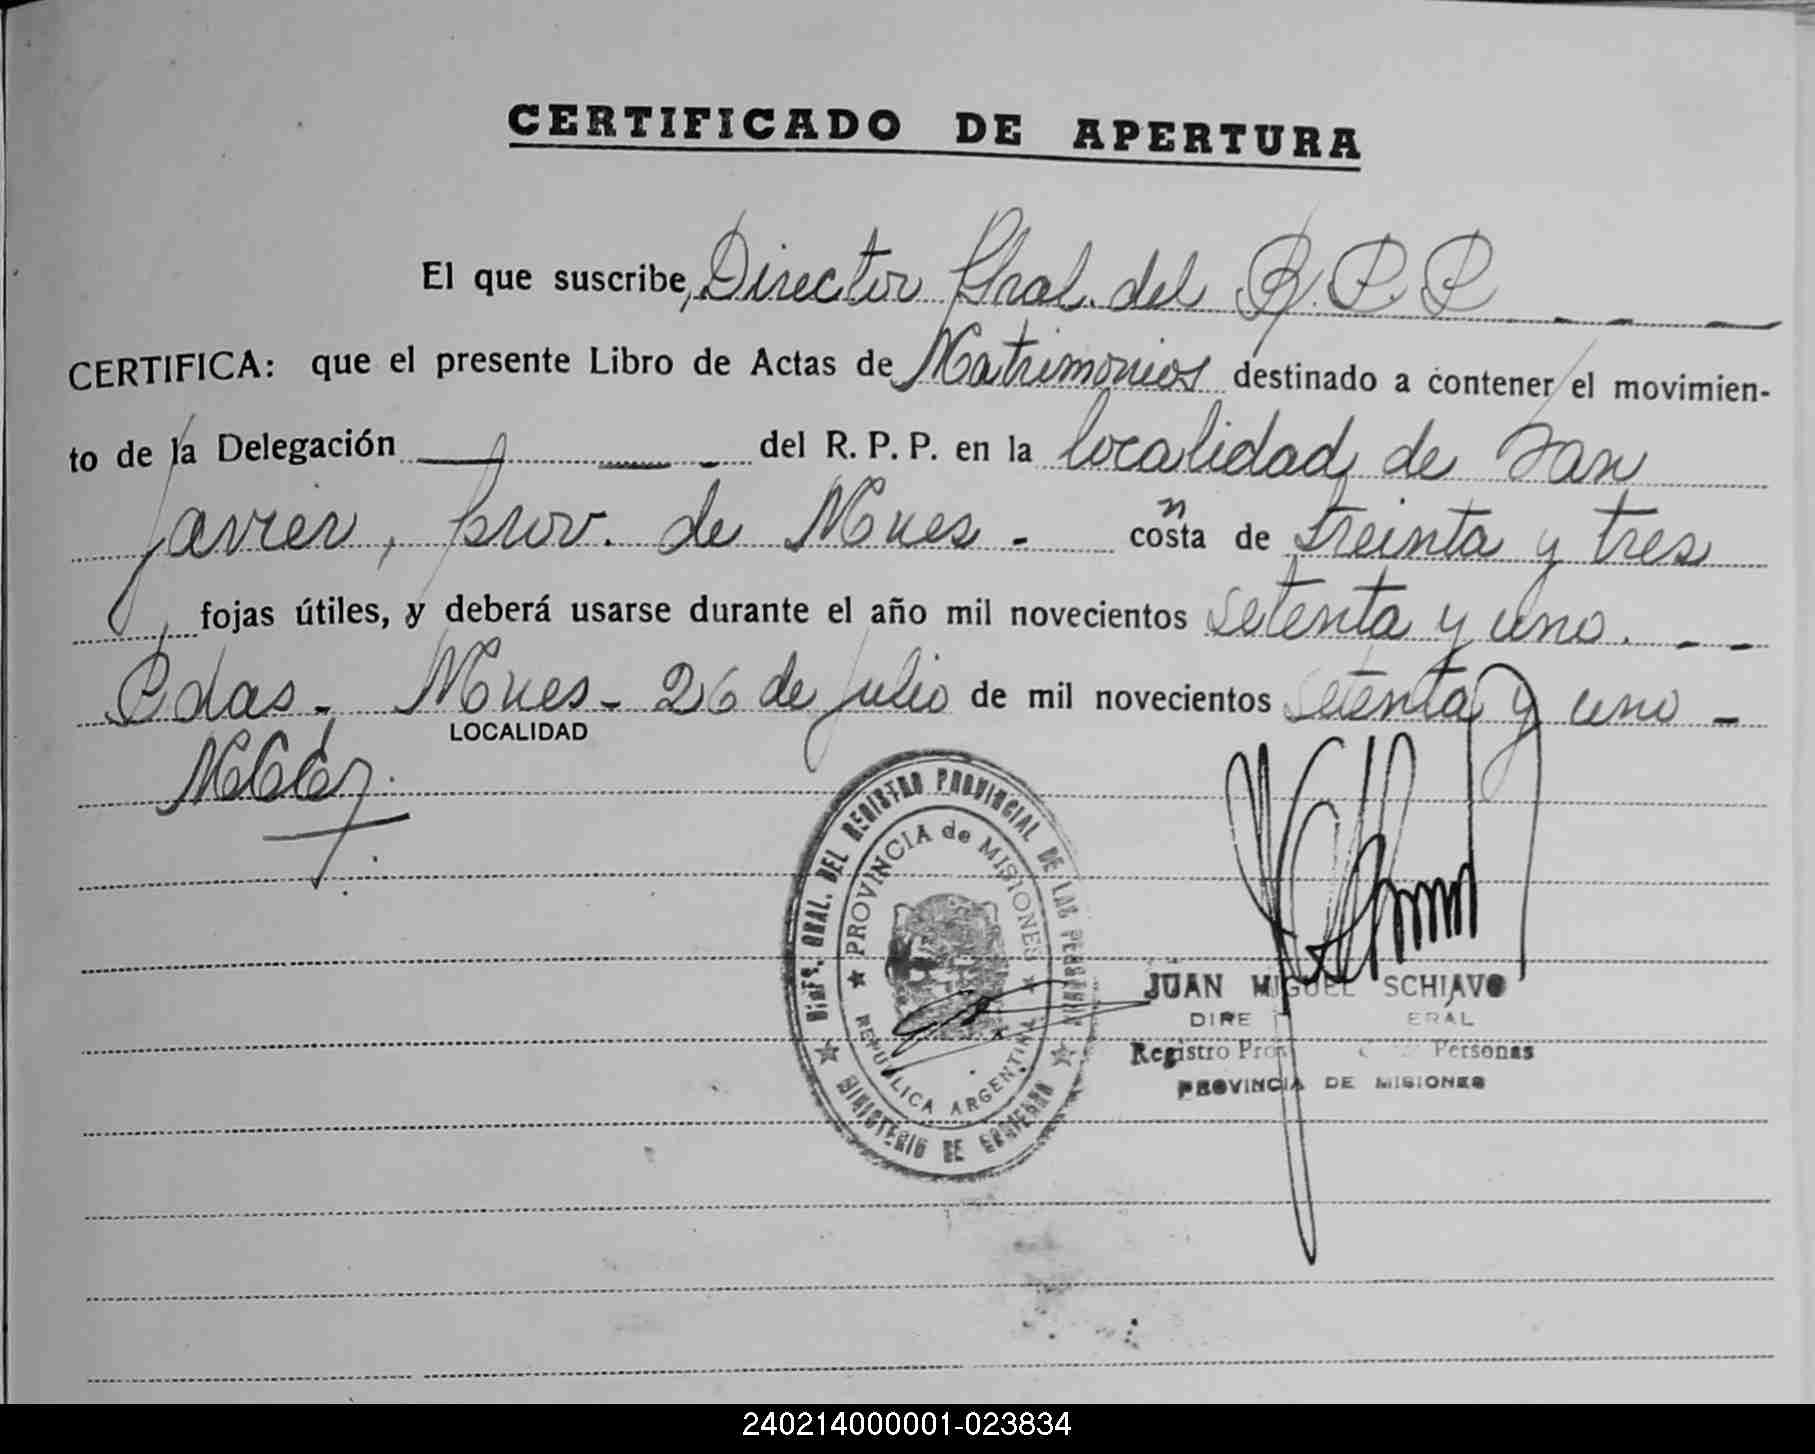 CERTIFICADO DE APERTURA
El que suscribe, Director Gral. del R.P.P. - - -
CERTIFICA: que el presente Libro de Actas de Matrimonios destinado a contener el movimien-
to de la Delegación — — - del R. P. P. en la localidad de San
Javier, prov. de Mnes - consta de treinta y tres
fojas útiles, y deberá usarse durante el año mil novecientos setenta y uno. - -
Pdas - Mnes - 26 de julio de mil novecientos setenta y uno -
LOCALIDAD
DIREC. GRAL. DEL REGISTRO PROVINCIAL DE LAS PERSONAS
PROVINCIA de MISIONES
REPUBLICA ARGENTINA
MINISTERIO DE GOBIERNO
JUAN MIGUEL SCHIAVO
DIRE ERAL
Registro Prov Personas
PROVINCIA DE MISIONES
240214000001-023834